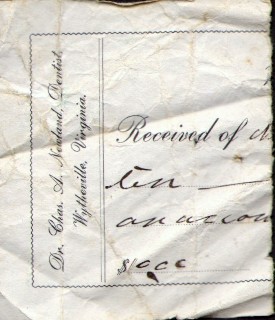 Dr. Chas. A. Newland, Dentist,
Wytheville, Virginia.
Received of M
ten
on accou
$10.00